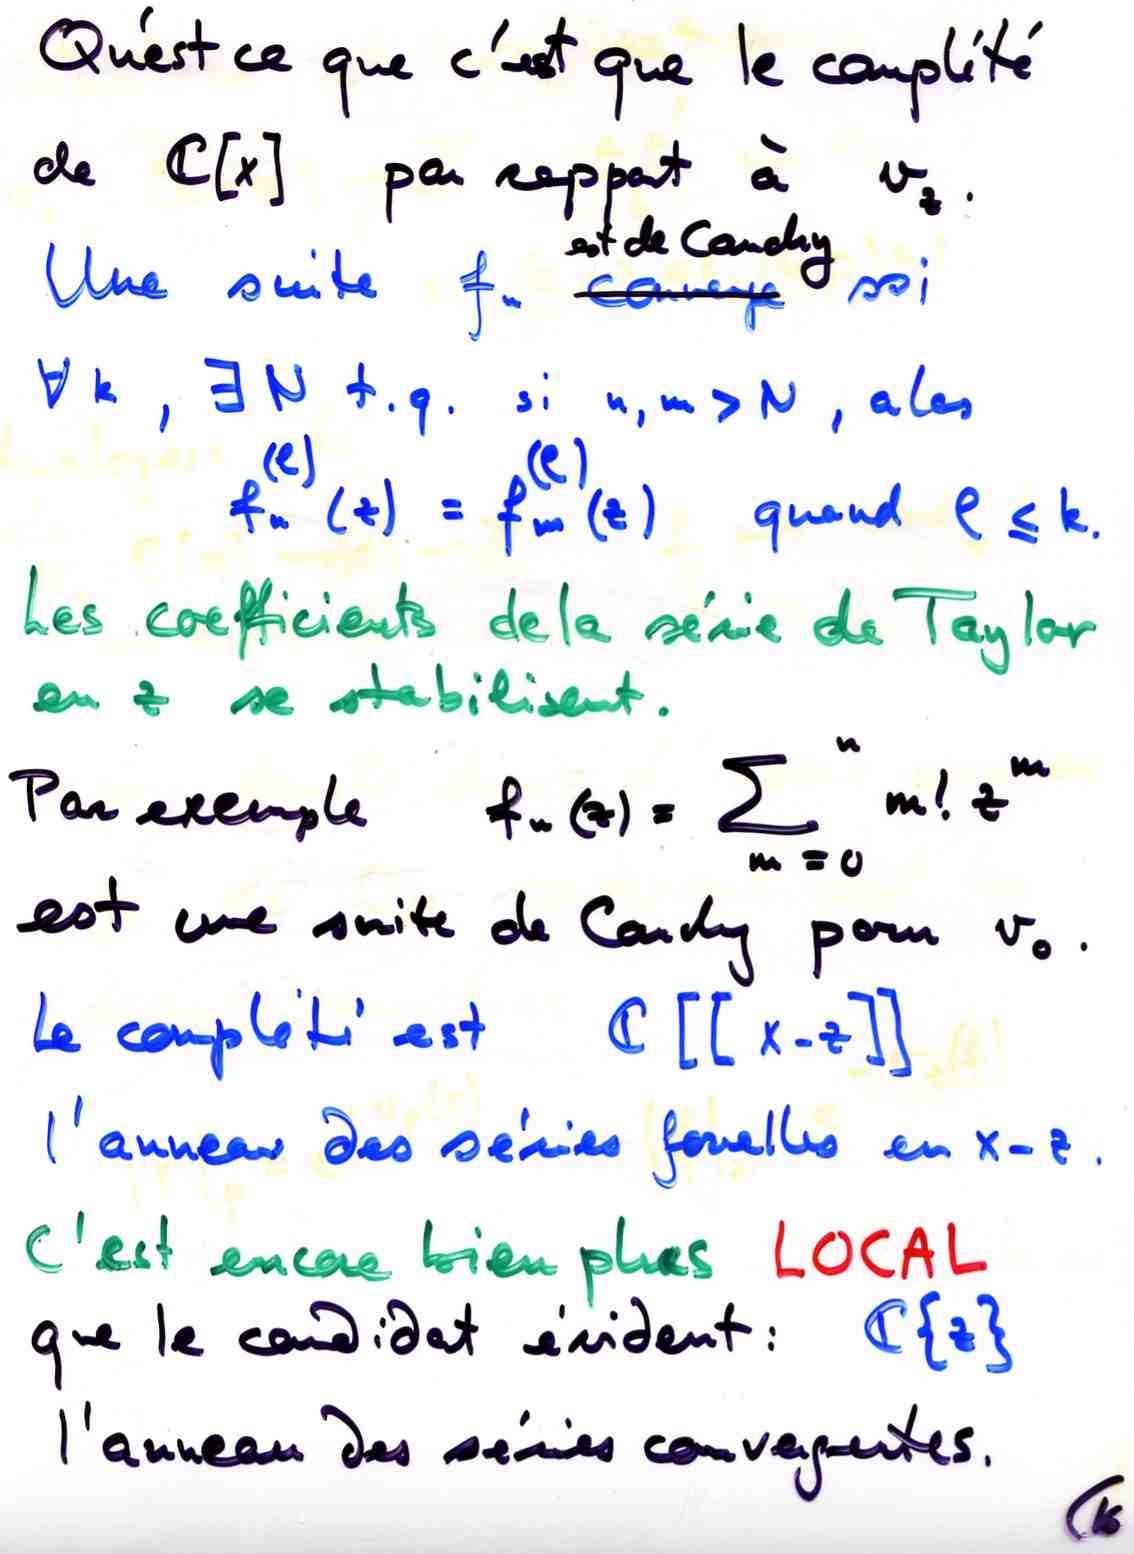 Qu'est ce que c'est que le complété
de ℂ[x] par rapport à v_z.
est de Cauchy
Une suite f_n ~~converge~~ ssi
∀k, ∃N t.q. si n,m > N, alors
f_n^(ℓ)(z) = f_m^(ℓ)(z) quand ℓ ≤ k.
Les coefficients de la série de Taylor
en z se stabilisent.
Par exemple f_n(z) = ∑_{m=0}^{n} m! z^m
est une suite de Cauchy pour v_0.
Le complété est ℂ[[x-z]]
l'anneau des séries formelles en x-z.
C'est encore bien plus LOCAL
que le candidat évident : ℂ{z}
l'anneau des séries convergentes.